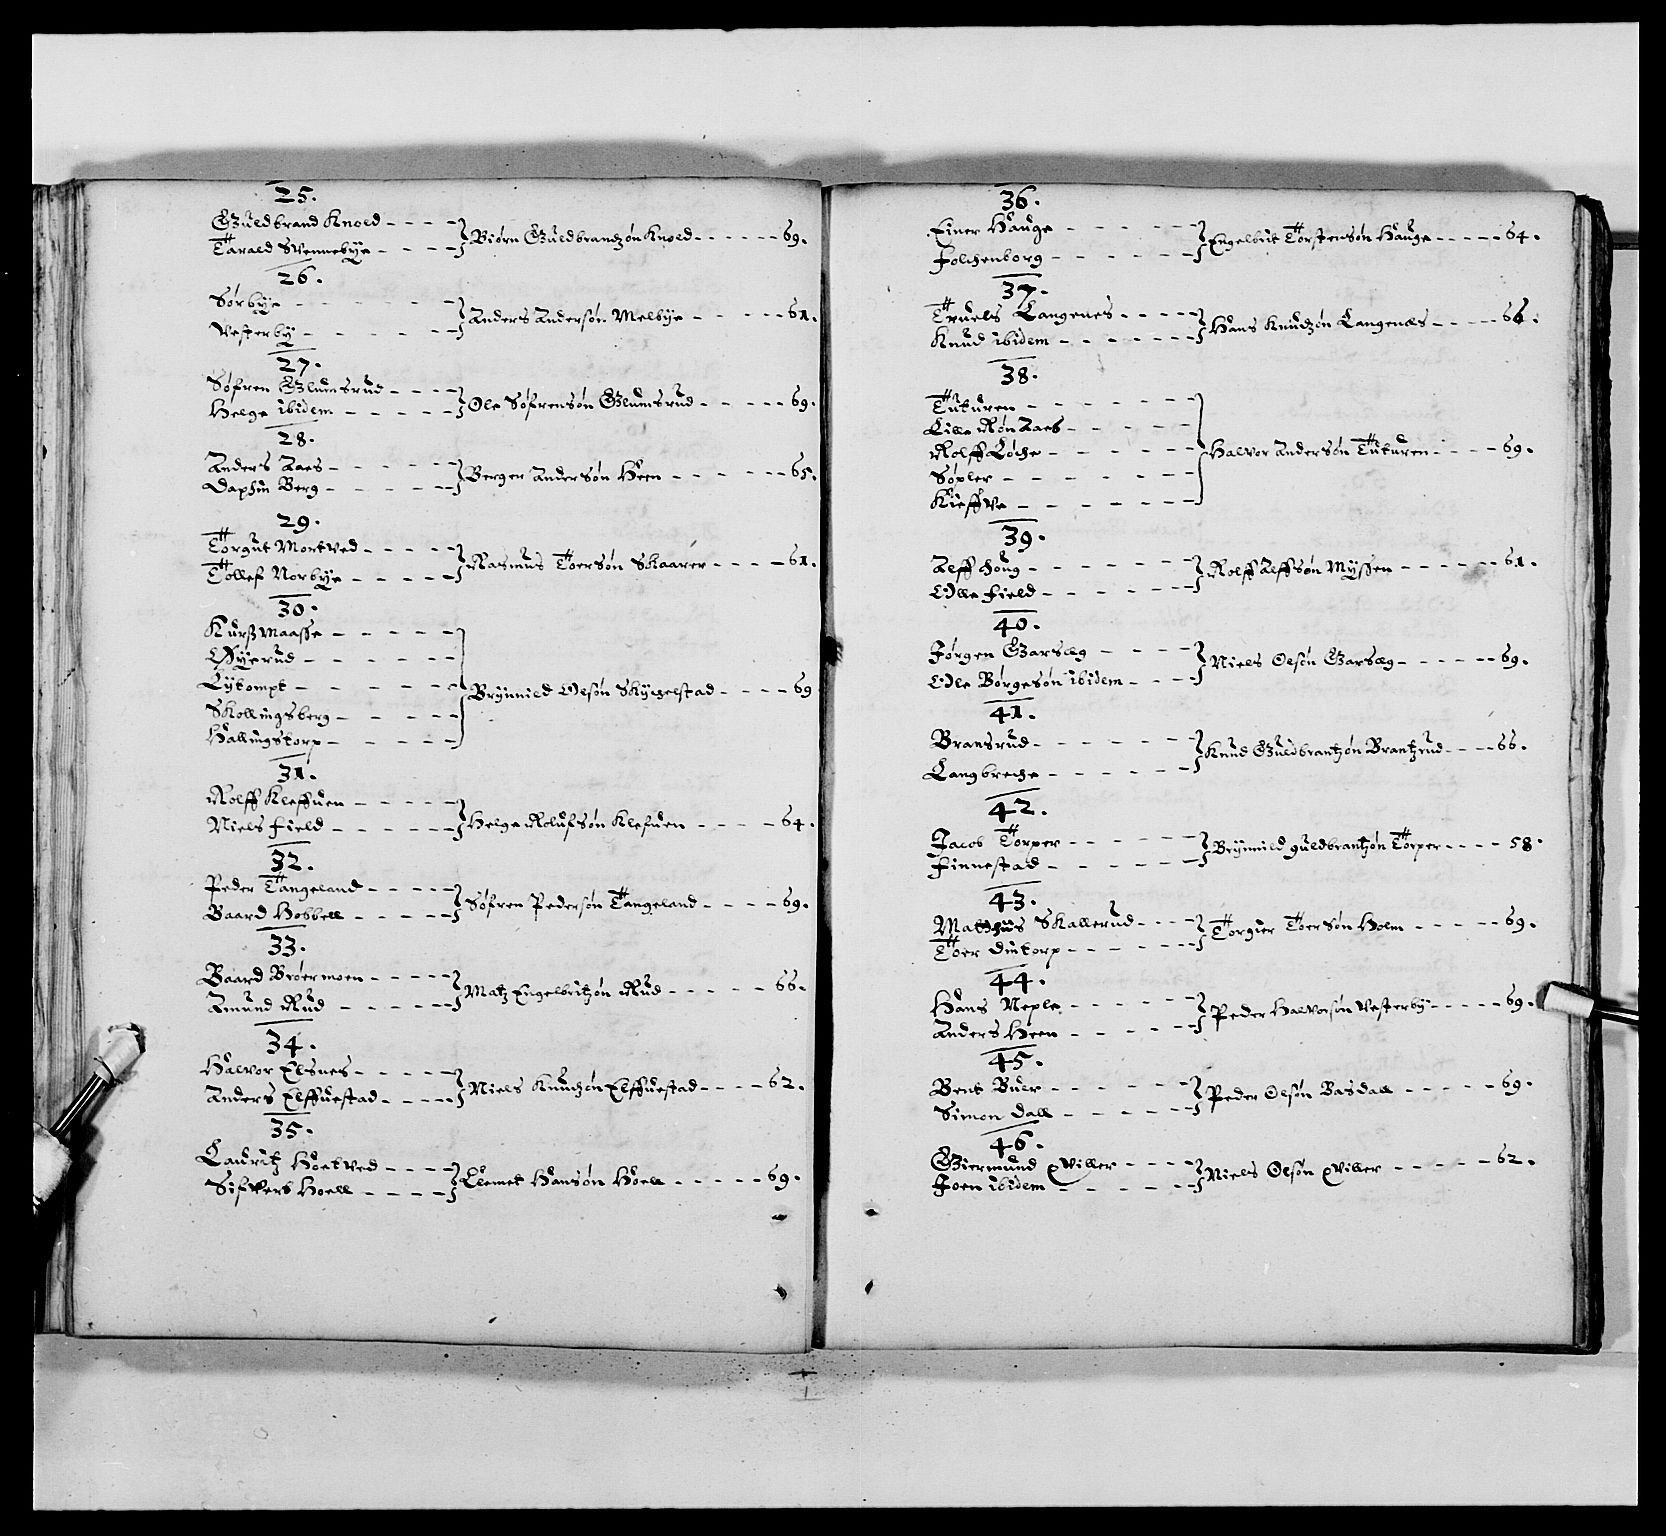 25.
Guldbrand Knold - - - -
Tarald Svennebÿe - - - - } Biörn Guldbrandzøn Knold - - - - - - 69.
26.
Sørbÿe - - - - - -
Vesterbÿ - - - - - - } Anders Andersøn Melbÿe - - - - - 61.
27.
Søfren Glumsrud - - - -
Helge ibidem - - - - - } Ole Søfrensøn Glumsrud - - - - - 69.
28.
Anders Aaes - - - - -
Daphin Berg - - - - - } Berger Andersøn Heen - - - - - 65.
29.
Torgut Mortved - - - -
Tollef Norbÿe - - - - - } Rasmus Toersøn Skaarer - - - - 61.
30.
Kurß Maasse - - - - -
Øÿerud - - - - - -
Lÿtompt - - - - - -
Skollingsberg - - - - -
Hallingstorp - - - - - } Brÿnnild Olsøn Skÿzelstad - - - - 69
31.
Rolff Kleffuen - - - - -
Niels Field - - - - - } Helge Rolufsøn Klefuen - - - - 64.
32.
Peder Tangeland - - - -
Baard Hobbell - - - - - } Søfren Pedersøn Tangeland - - - - 69.
33.
Baard Broermoen - - - - -
Amund Rud - - - - - } Matz Engelbritzøn Rud - - - - - 66.
34.
Halvor Elsnes - - - - -
Anders Elffuestad - - - - } Niels Knudzøn Elffuestad - - - - 62.
35.
Lauritz Hoetved - - - -
Sifvert Hoell - - - - } Clemet Hansøn Hoell - - - - - 69.
36.
Einer Hauge - - - - - -
Folchenborg - - - - - - } Engelbrit Torstensøn Hauge - - - - - 64.
37.
Truels Langenes - - - -
Knud ibidem - - - - - - } Hans Knudzøn Langenæs - - - - 66.
38.
Tuturen - - - - - - -
Lille Røn Aaes - - - - -
Rolff Løche - - - - - -
Søpler - - - - - -
Kieffve - - - - - - } Halvor Andersøn Tuturen - - - - 69.
39.
Alff Houg - - - - - -
Olle Field - - - - - - } Rolff Alffsøn Mÿssen - - - - - - 61.
40.
Jørgen Garsæg - - - -
Ole Børgesøn ibidem - - - } Niels Olsøn Garsæg - - - - - 69.
41.
Bransrud - - - - - -
Langbreche - - - - - - } Knud Guldbrantzøn Brantzrud - - - 66.
42.
Jacob Torper - - - - - -
Finnestad - - - - - - } Brÿnnild guldbrantzøn Torper - - - - 58.
43.
Matthias Skallerud - - - -
Toer Dintorp - - - - - - } Torgier Toersøn Holm - - - - - 69.
44.
Hans Neple - - - - - -
Anders Heen - - - - - - } Peder Halvorsøn Vesterbÿ - - - - 69.
45.
Bent Buer - - - - - -
Simon Dall - - - - - - } Peder Olsøn Basdall - - - - - 69.
46.
Giermund Viller - - - -
Joen ibidem - - - - - - } Niels Olsøn Viller - - - - - 62.